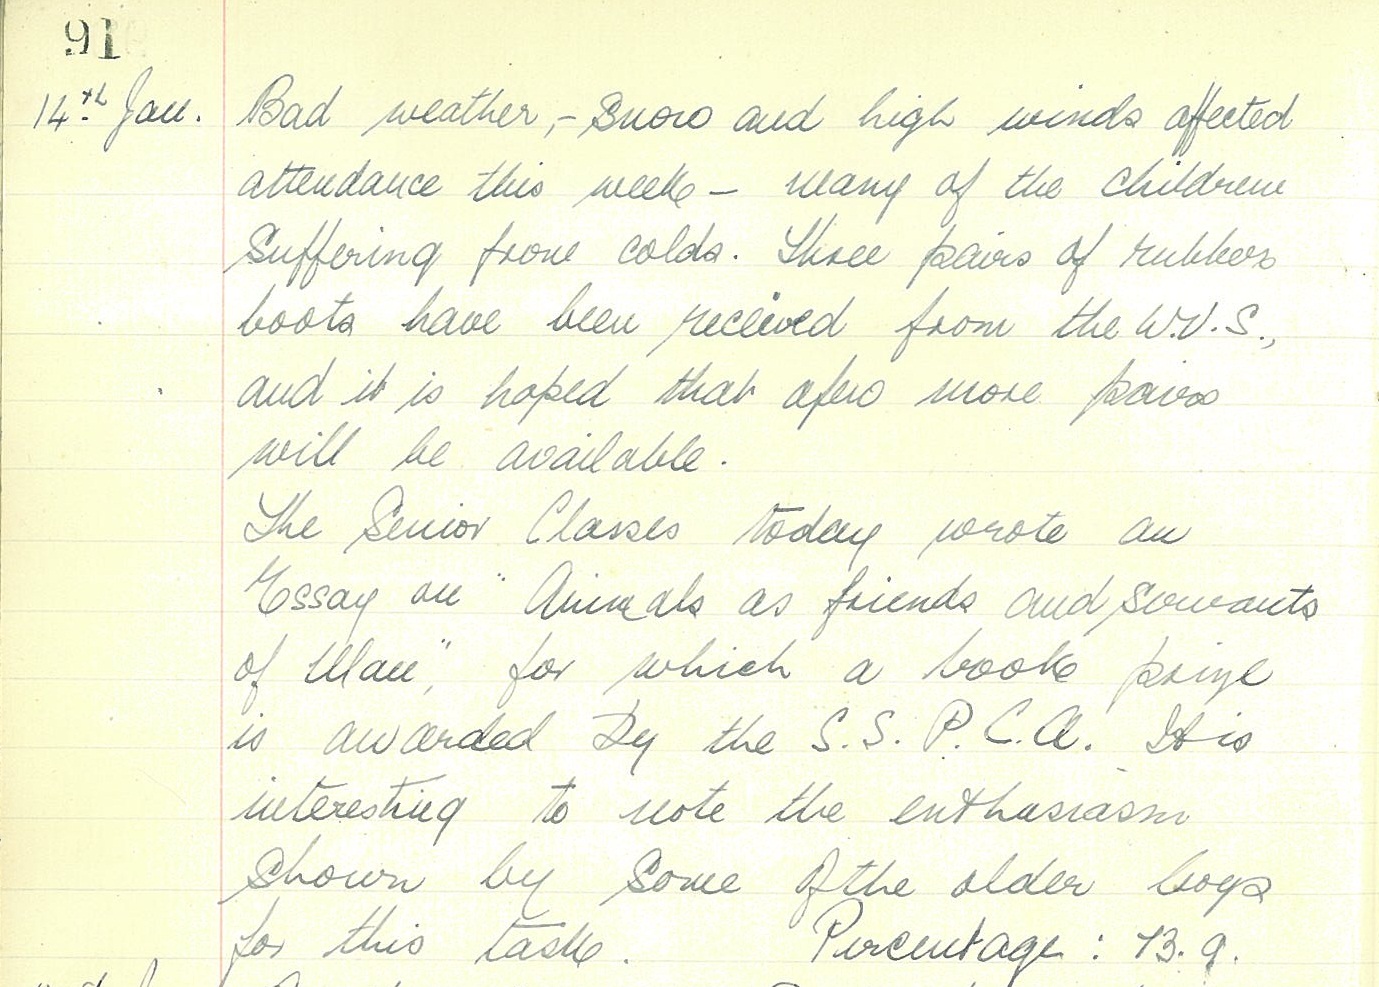 91
14th Jan. Bad weather, - Snow and high winds affected
attendance this week - many of the children
Suffering from colds. Three pairs of rubber
boots have been received from the W.V.S.,
and it is hoped that a few more pairs
will be available.
The Senior Classes today wrote an
Essay on "Animals as friends and Servants
of Man", for which a book prize
is awarded by the S.S.P.C.A. It is
interesting to note the enthusiasm
shown by some of the older boys
for this task. Percentage: 73.9.